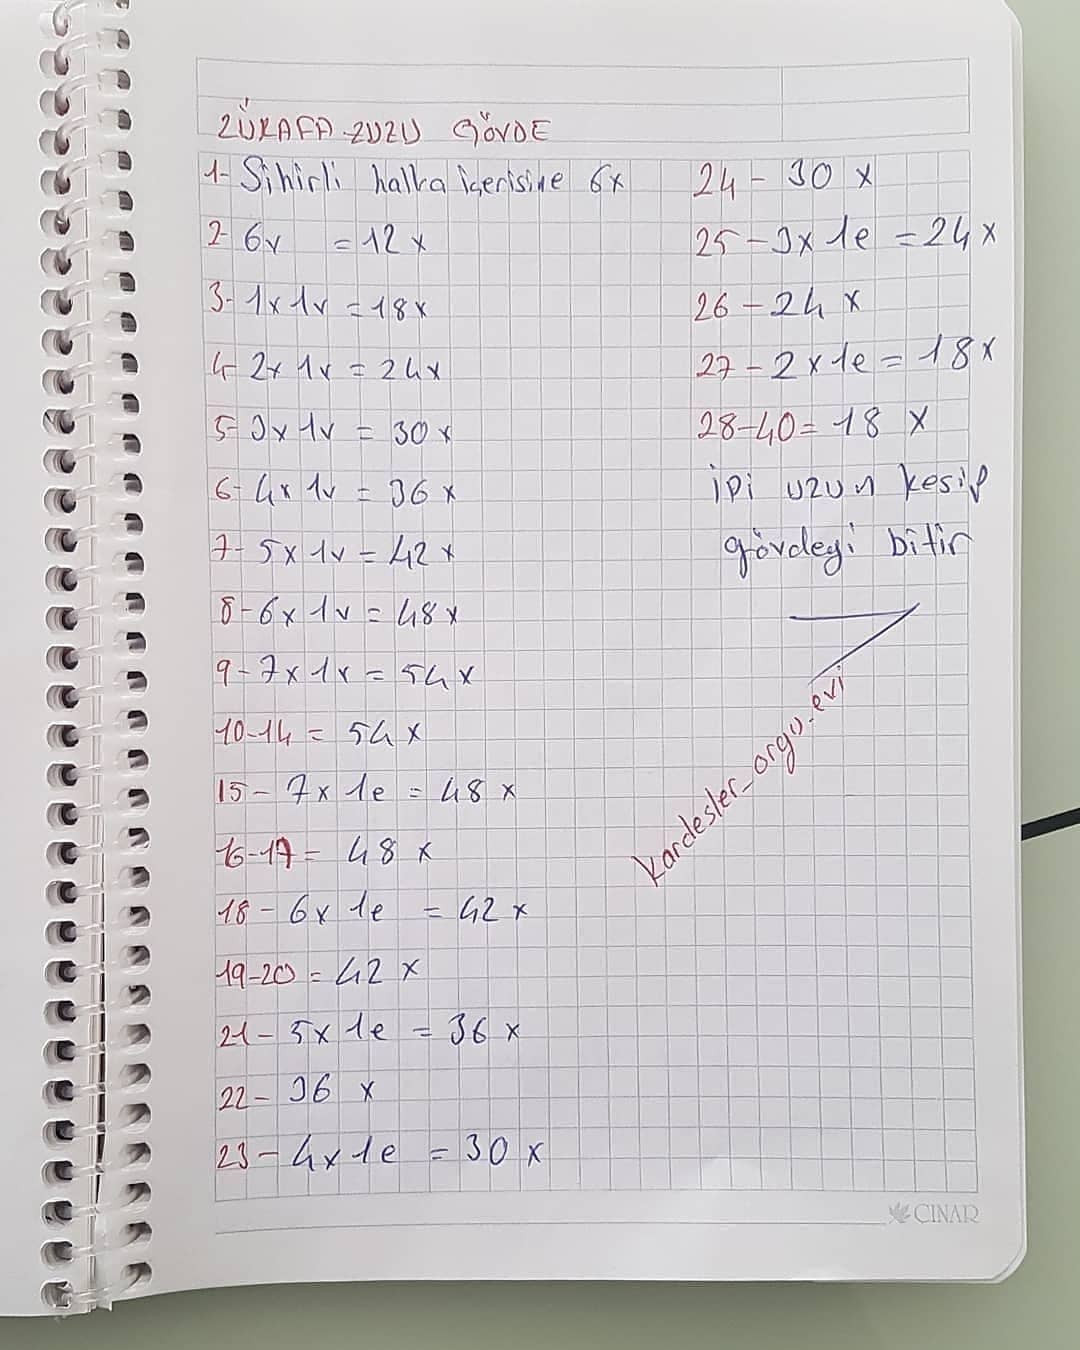 ZÜRAFA ZUZU GÖVDE
1- Sihirli halka içerisine 6x
2- 6v = 12x
3- 1x 1v = 18x
4- 2x 1v = 24x
5- 3x 1v = 30x
6- 4x 1v = 36x
7- 5x 1v = 42x
8- 6x 1v = 48x
9- 7x 1v = 54x
10-14 = 54x
15- 7x 1e = 48x
16-17 = 48x
18- 6x 1e = 42x
19-20 = 42x
21- 5x 1e = 36x
22- 36x
23- 4x 1e = 30x
24- 30x
25- 3x 1e = 24x
26- 24x
27- 2x 1e = 18x
28-40 = 18x
İpi uzun kesip
gövdeyi bitir
kardesler_orgu_evi
ÇINAR